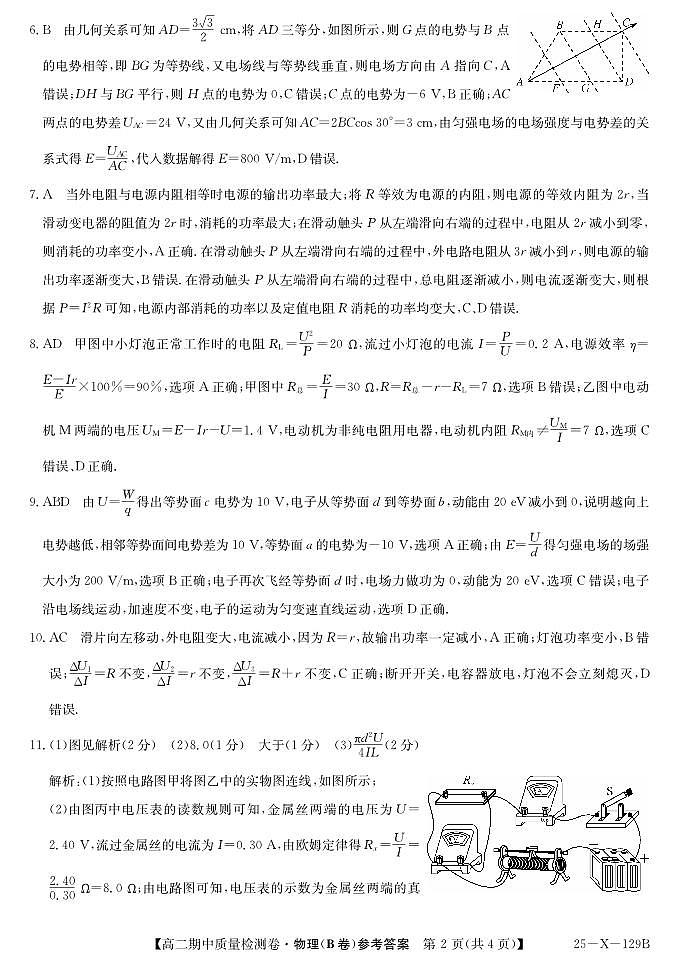 6. B 由几何关系可知 AD=3√3/2 cm,将 AD 三等分,如图所示,则 G 点的电势与 B 点
的电势相等,即 BG 为等势线,又电场线与等势线垂直,则电场方向由 A 指向 C,A
错误;DH 与 BG 平行,则 H 点的电势为 0,C 错误;C 点的电势为-6 V,B 正确;AC
两点的电势差U_AC=24 V,又由几何关系可知 AC=2BCcos 30°=3 cm,由匀强电场的电场强度与电势差的关
系式得 E=U_AC/AC,代入数据解得 E=800 V/m,D 错误.
B H C
A F G D
7. A 当外电阻与电源内阻相等时电源的输出功率最大;将 R 等效为电源的内阻,则电源的等效内阻为 2r,当
滑动变电器的阻值为 2r 时,消耗的功率最大;在滑动触头 P 从左端滑向右端的过程中,电阻从 2r 减小到零,
则消耗的功率变小,A 正确. 在滑动触头 P 从左端滑向右端的过程中,外电路电阻从 3r 减小到 r,则电源的输
出功率逐渐变大,B 错误. 在滑动触头 P 从左端滑向右端的过程中,总电阻逐渐减小,则电流逐渐变大,则根
据 P=I²R 可知,电源内部消耗的功率以及定值电阻 R 消耗的功率均变大,C、D 错误.
8. AD 甲图中小灯泡正常工作时的电阻 R_L=U²/P=20 Ω,流过小灯泡的电流 I=P/U=0.2 A,电源效率 η=
E-Ir/E×100%=90%,选项 A 正确;甲图中 R总=E/I=30 Ω,R=R总-r-R_L=7 Ω,选项 B 错误;乙图中电动
机 M 两端的电压 U_M=E-Ir-U=1.4 V,电动机为非纯电阻用电器,电动机内阻 R_M内≠U_M/I=7 Ω,选项 C
错误、D 正确.
9. ABD 由 U=W/q得出等势面 c 电势为 10 V,电子从等势面 d 到等势面 b,动能由 20 eV 减小到 0,说明越向上
电势越低,相邻等势面间电势差为 10 V,等势面 a 的电势为-10 V,选项 A 正确;由 E=U/d得匀强电场的场强
大小为 200 V/m,选项 B 正确;电子再次飞经等势面 d 时,电场力做功为 0,动能为 20 eV,选项 C 错误;电子
沿电场线运动,加速度不变,电子的运动为匀变速直线运动,选项 D 正确.
10. AC 滑片向左移动,外电阻变大,电流减小,因为 R=r,故输出功率一定减小,A 正确;灯泡功率变小,B 错
误;ΔU₁/ΔI=R 不变,ΔU₂/ΔI=r 不变,ΔU₃/ΔI=R+r 不变,C 正确;断开开关,电容器放电,灯泡不会立刻熄灭,D
错误.
11. (1)图见解析(2 分) (2)8.0(1 分) 大于(1 分) (3)πd²U/4IL(2 分)
解析:(1)按照电路图甲将图乙中的实物图连线,如图所示;
(2)由图丙中电压表的读数规则可知,金属丝两端的电压为 U=
2.40 V,流过金属丝的电流为 I=0.30 A,由欧姆定律得 Rₓ=U/I=
2.40/0.30 Ω=8.0 Ω;由电路图可知,电压表的示数为金属丝两端的真
Rₓ
S
+
【高二期中质量检测卷·物理(B 卷)参考答案 第 2 页(共 4 页)】 25-X-129B